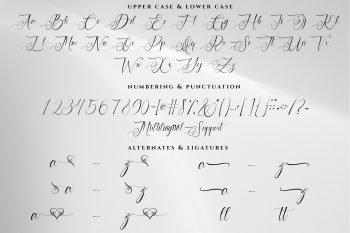 UPPER CASE & LOWER CASE
Aa Bb Cc Dd Ee Ff Gg Hh Ii Jj Kk
Ll Mm Nn Oo Pp Qq Rr Ss Tt Uu Vv
Ww Xx Yy Zz
NUMBERING & PUNCTUATION
Multilingual Support
ALTERNATES & LIGATURES
a – z a – z
a – z a – z
a – z ll tt